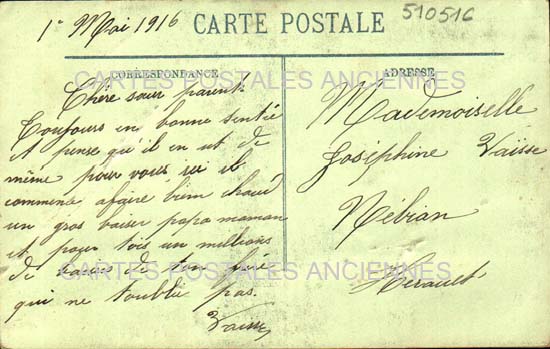 1er Mai 1916
CARTE POSTALE
510516
CORRESPONDANCE
ADRESSE
CARTES POSTALES ANCIENNES
Chère sœur parents
Toujours en bonne sentée
et pense qu'il en ut de
même pour vous ici il
commence afaire bien chaud
un gros baiser papa maman
et pour tois un millions
de baises de ton frère
qui ne toublie pas.
Vaisse
Mademoiselle
Joséphine Vaïsse
Nébian
Hérault
CARTES POSTALES ANCIENNES